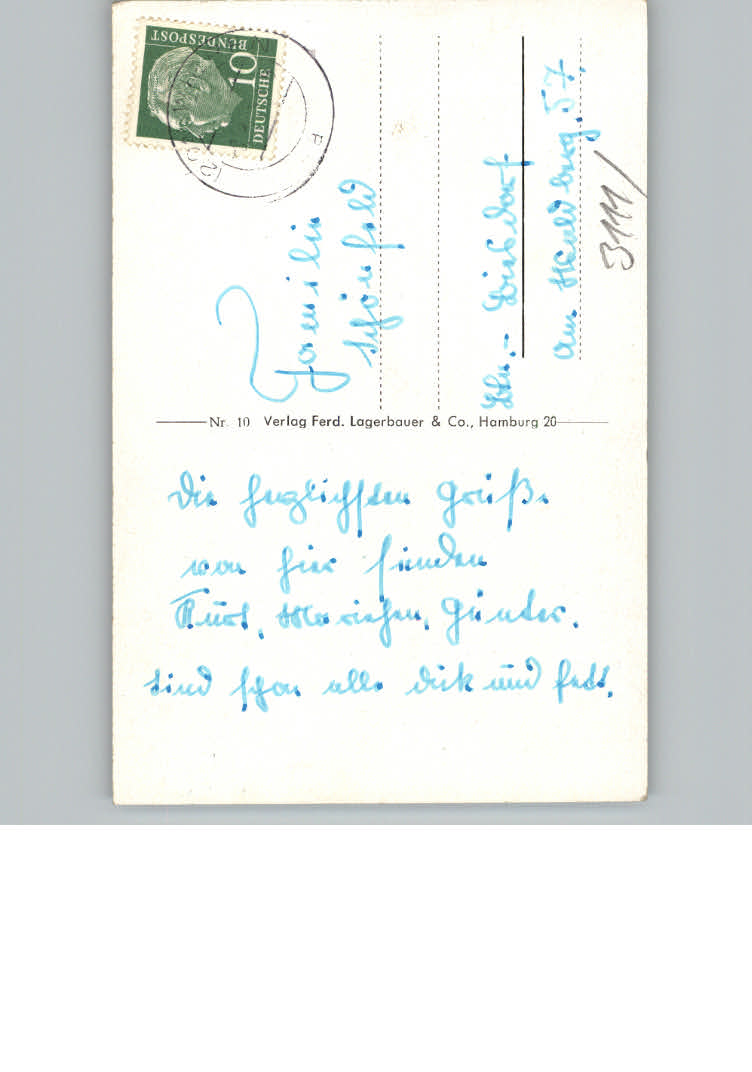 DEUTSCHE
BUNDESPOST
10
Familie
Schönfeld
Am 57
3111/
Nr. 10 Verlag Ferd. Lagerbauer & Co., Hamburg 20
Die herzlichsten Grüße
von hier senden
Kurt, Mariechen, Günter.
sind schon alle dick und fett.